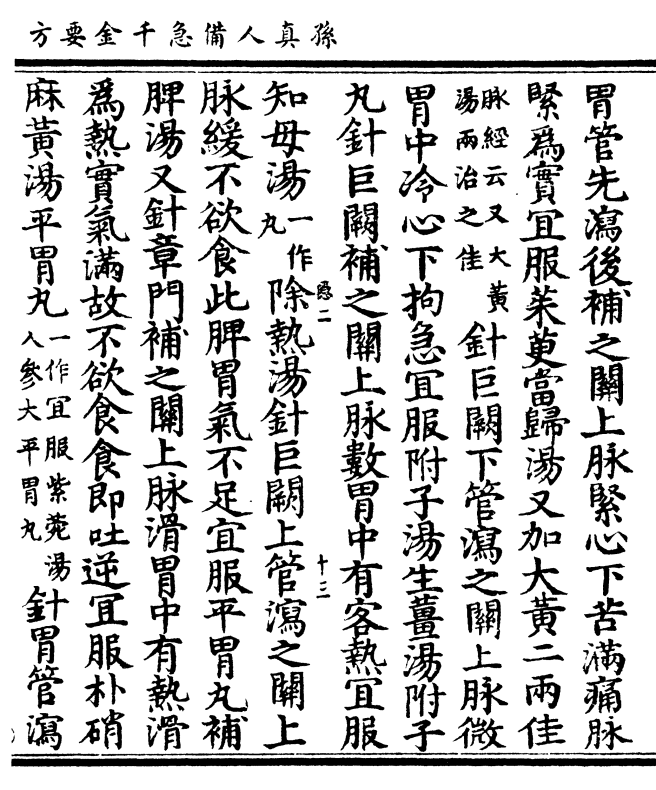 孫真人備急千金要方
胃管先瀉後補之關上脉緊心下苦滿痛脉
緊爲實宜服茱萸當歸湯又加大黃二兩佳
脉經云又大黃
湯兩治之佳
針巨闕下管瀉之關上脉微
胃中冷心下拘急宜服附子湯生薑湯附子
丸針巨闕補之關上脉數胃中有客熱宜服
知母湯
一作
丸
除熱湯針巨闕上管瀉之關上
二
十三
脉緩不欲食此脾胃氣不足宜服平胃丸補
脾湯又針章門補之關上脉滑胃中有熱滑
爲熱實氣滿故不欲食食即吐逆宜服朴硝
麻黃湯平胃丸
一作宜服紫菀湯
人參大平胃丸
針胃管瀉